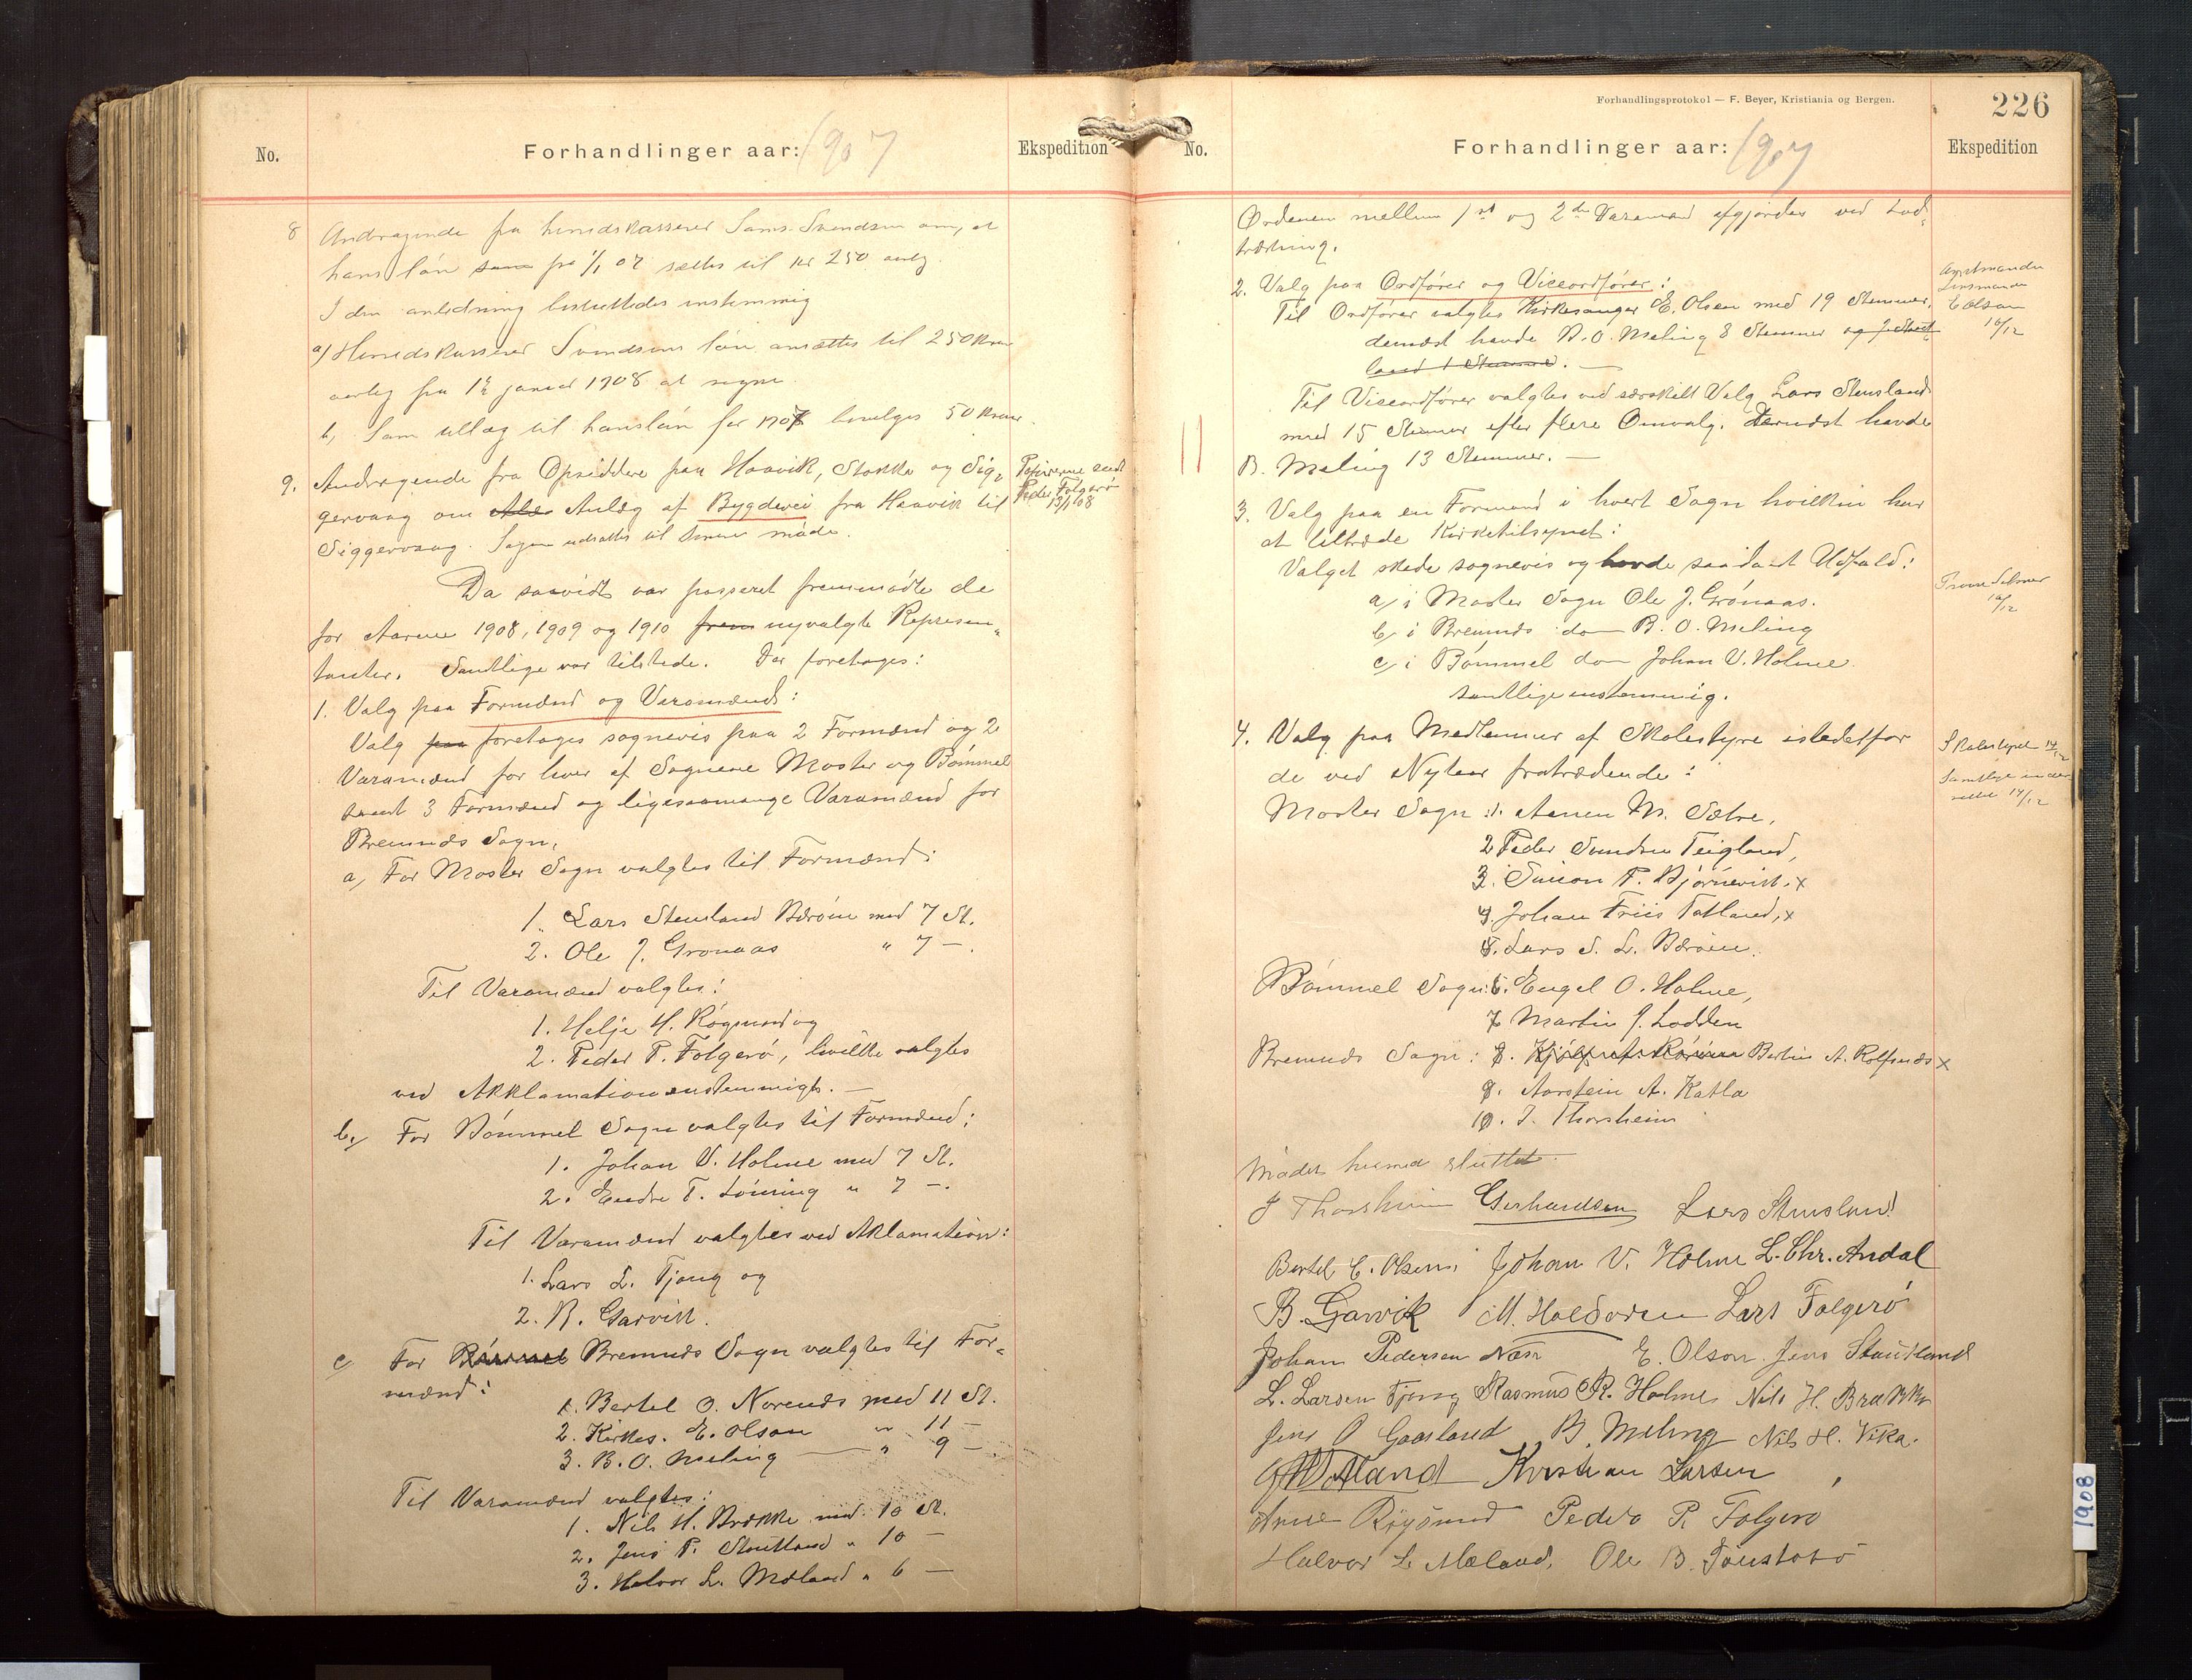 No.
Forhandlinger aar: 1907
Ekspedition
8 Andragende fra herredskasserer Sams. Svendsen om, at
hans løn fra 1/1 07 sættes til kr 250 aarlig.
I den anledning besluttedes enstemmig
a) Herredskasserer Svendsens løn ansættes til 250 kroner
aarlig fra 1ste januar 1908 at regne.
b, Som tillæg til hans løn for 1907 bevilges 50 kroner.
9. Andragende fra Opsiddere paa Haavik, Stokka og Sig-
gervaag om Anlæg af Bygdevei fra Haavik til
Siggervaag. Sagen udsattes til senere møde.
Papirerne sendt
Peder Folgerø
13/1 08
Da saavidt var passeret fremmødte de
for Aarene 1908, 1909 og 1910 frem nyvalgte Represen-
tanter. Samtlige var tilstede. Der foretages:
1. Valg paa Formænd og Varamænd:
Valg paa foretages sognevis paa 2 Formænd og 2
Varamænd for hver af Sognene Moster og Bømmel
samt 3 Formænd og ligesaamange Varamænd for
Bremnes Sogn.
a, For Moster Sogn valgtes til Formænd:
1. Lars Stensland Bærøen med 7 St.
2. Ole J. Grønaas " 7 –.
Til Varamænd valgtes:
1. Helje H. Røgsund og
2. Peder P. Folgerø, hvilke valgtes
ved Akklamation enstemmigt. –
b, For Bømmel Sogn valgtes til Formænd:
1. Johan V. Holme med 7 St.
2. Endre T. Lønning " 7 –.
Til Varamænd valgtes ved Aklamation:
1. Lars L. Tjong og
2. B. Garvik.
c, For Bømmel Bremnes Sogn valgtes til For-
mænd:
1. Bertel O. Norenæs med 11 St.
2. Kirkes. E. Olson " 11 –
3. B. O. Meling " 9 –
Til Varamænd valgtes:
1. Nils H. Brække med 10 St.
2. Jens P. Stautland " 10 –
3. Halvor L. Mæland " 6 –
Forhandlingsprotokol — F. Beyer, Kristiania og Bergen.
226
No.
Forhandlinger aar: 1907
Ekspedition
Ordenen mellem 1ste og 2den Varamand afgjordes ved Lod-
trækning.
2. Valg paa Ordfører og Viceordfører:
Til Ordfører valgtes Kirkesanger E. Olsen med 19 Stemmer,
dernæst havde B. O. Meling 8 Stemmer og J. Staut
land 1 Stemme. –
Til Viceordfører valgtes ved særskilt Valg Lars Stensland
med 15 Stemmer efter flere Omvalg. Dernæst havde
B. Meling 13 Stemmer. –
Amtmanden
Lensmanden
E Olson
16/12
3. Valg paa en Formand i hvert Sogn hvilken har
at tiltræde Kirketilsynet:
Valget skede sognevis og havde saadant Udfald:
a, i Moster Sogn Ole J. Grønaas.
b, i Bremnes do B. O. Meling
c, i Bømmel do Johan V. Holme.
samtlige enstemmig.
16/12
4. Valg paa Medlemmer af Skolestyre istedetfor
de ved Nytaar fratrædende:
Skolestyret 14/12
Samtlige under-
rettet 14/12
Moster Sogn: 1. Aanen M. Sætre,
2 Peder Svendsen Teigland,
3. Simon P. Bjørnevik. x
4. Johan Friis Totland, x
5. Lars S. L. Bærøen.
Bømmel Sogn: 6. Engel O. Holme,
7 Martin J. Lodden
Bremnes Sogn: 8. Bertin A. Rolfsnæs x
9. Aarstein A. Katla
10. J. Thorsheim
Mødet hermed sluttet.
J Thorsheim Gerhardsen Lars Stensland
Bertel C. Olsen. Johan V. Holme L. Chr. Andal
B. Garvik M. Haldorsen Lars Folgerø
Johan Pedersen Næss E. Olson. Jens Stautland
L. Larsen Tjong Rasmus R. Holme Nils H. Brække
Jens O Gaasland B. Meling Nils H. Vika.
Kristian Larsen
Røgsund Peder P. Folgerø
Halvor L. Mæland. Ole B.
1908